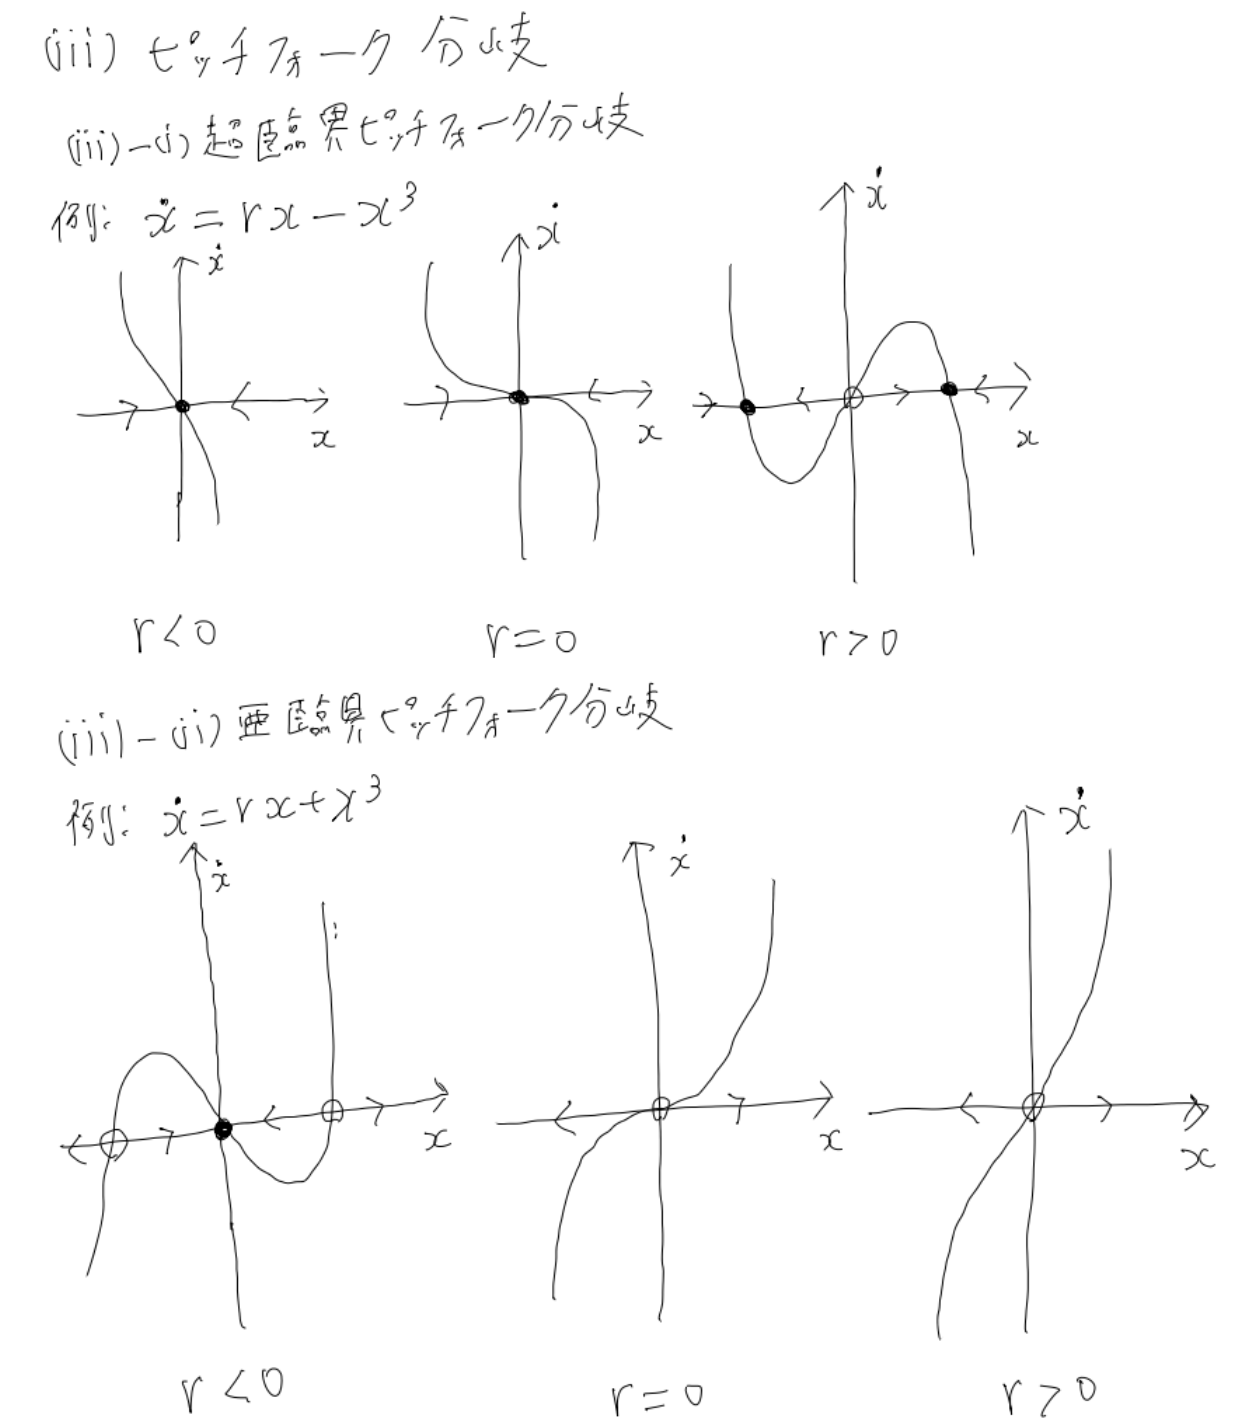 (iii) ピッチフォーク分岐
(iii)-(i) 超臨界ピッチフォーク分岐
例: ẋ = rx - x³
ẋ
x
ẋ
x
ẋ
x
r<0
r=0
r>0
(iii)-(ii) 亜臨界ピッチフォーク分岐
例: ẋ = rx + x³
ẋ
x
ẋ
x
ẋ
x
r<0
r=0
r>0